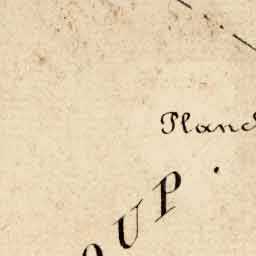 Pland
OUP.